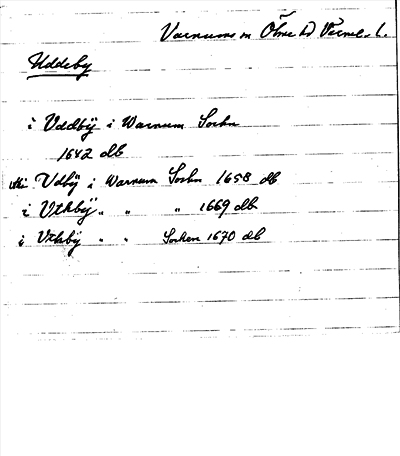 Varnums sn Ölme hd Värml. l.
Uddeby
i Vddbÿ i Warnum Sochn
1642 db
i Vdbÿ i Warnum Sochn 1658 db
i Vthbÿ " " " 1669 db
i Vthbÿ " " Sochen 1670 db